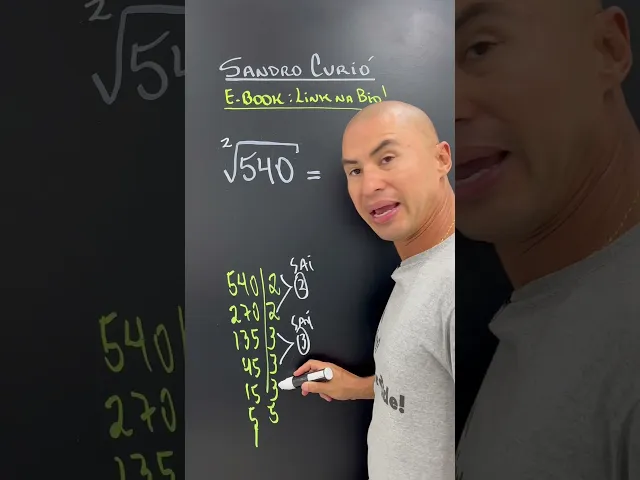 SANDRO CURIÓ
E-BOOK: LINK NA BIO!
²√540 =
540 | 2
270 | 2
135 | 3
45 | 3
15 | 3
5 5
1
SAI
2
SAI
3
de!
²√54
540
270
135